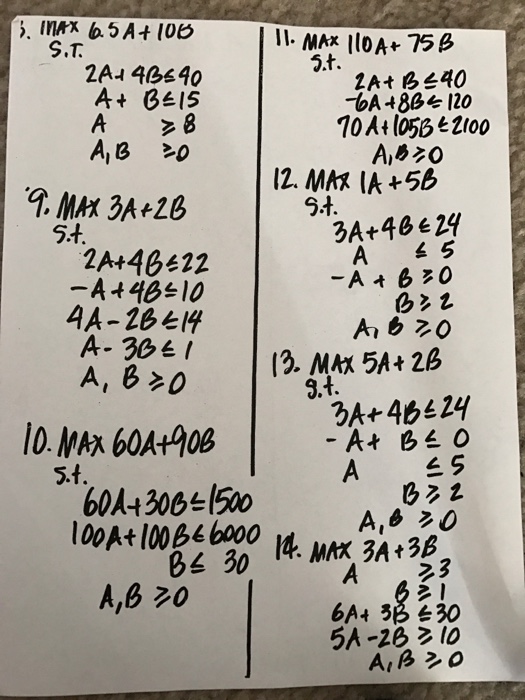 3. MAX 6.5A + 10B
S.T.
2A + 4B ≤ 40
A + B ≤ 15
A ≥ 8
A, B ≥ 0
9. MAX 3A + 2B
S.t.
2A + 4B ≤ 22
-A + 4B ≤ 10
4A - 2B ≤ 14
A - 3B ≤ 1
A, B ≥ 0
10. MAX 60A + 90B
S.t.
60A + 30B ≤ 1500
100A + 100B ≤ 6000
B ≤ 30
A, B ≥ 0
11. MAX 110A + 75B
S.t.
2A + B ≤ 40
-6A + 8B ≤ 120
70A + 105B ≤ 2100
A, B ≥ 0
12. MAX 1A + 5B
S.t.
3A + 4B ≤ 24
A ≤ 5
-A + B ≥ 0
B ≥ 2
A, B ≥ 0
13. MAX 5A + 2B
S.t.
3A + 4B ≤ 24
-A + B ≤ 0
A ≤ 5
B ≥ 2
A, B ≥ 0
14. MAX 3A + 3B
A ≥ 3
B ≥ 1
6A + 3B ≤ 30
5A - 2B ≥ 10
A, B ≥ 0